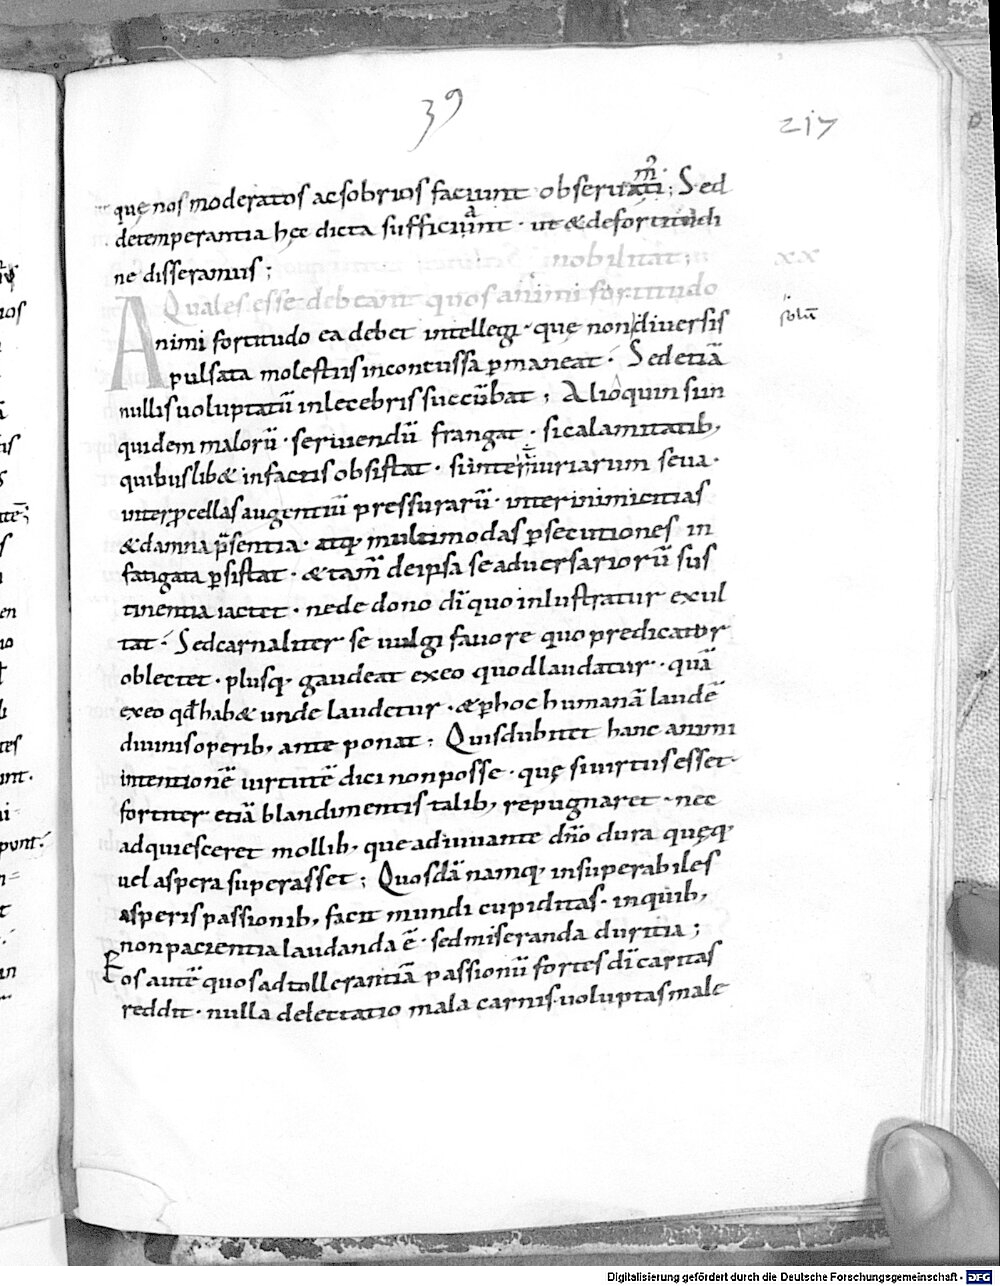 39
217
quę nos moderatos ac sobrios faciunt observati; Sed
de temperantia hęc dicta sufficiunt · ut & de fortitudi
ne disseramus;
nobilitat;
xx
Quales esse debeant quos animi fortitudo
Animi fortitudo ea debet intellegi · quę non diversis
solū
pulsata molestiis inconcussa ꝑmaneat · Sed etiā
nullis uoluptatū inlecebris succūbat ; Alioquin si in
quidem malorū · seruiendū frangat · si calamitatib;
quibuslib& infactis obsistat · si inter iniuriarum seua ·
inter ꝓcellas augentiū pressurarū · inter inimicitias
& damna p̄sentia · atq; multimodas ꝑsecutiones in
fatigata ꝑsistat · & tam̄ de ipsa se aduersariorū sus
tinentia iactet · ne de dono dī quo inlustratur exul
tat · Sed carnaliter se uulgi fauore quo predicatur
oblectet · plusq; gaudeat ex eo quod laudatur · quā
ex eo qđ hab& unde laudetur · & ꝑ hoc humanā laudē
diuinis operib; ante ponat ; Quis dubitet hanc animi
intentionē uirtutē dici non posse · quę si uirtus esset
fortiter etiā blandimentis talib; repugnaret · nec
adquiesceret mollib; que adiuuante dn̄o dura quęq;
uel aspera superasset ; Quosdā namq; insuperabiles
asperis passionib; facit mundi cupiditas · in quib;
non pacientia laudanda ē · sed miseranda duritia ;
Eos autē quos ad tollerantiā passionū fortes dī caritas
reddit · nulla delectatio mala carnis · uoluptas male
Digitalisierung gefördert durch die Deutsche Forschungsgemeinschaft - DFG